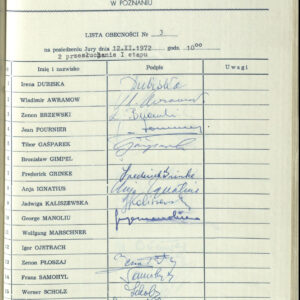 W POZNANIU
LISTA OBECNOŚCI Nr 3
na posiedzeniu Jury dnia 12.XI.1972 godz. 10⁰⁰
2 przesłuchanie I etapu
Imię i nazwisko Podpis Uwagi
Irena DUBISKA Dubiska
Wladimir AWRAMOW Awramow
Zenon BRZEWSKI
Jean FOURNIER
Tibor GAŠPAREK Gašparek
Bronisław GIMPEL
Frederick GRINKE Frederick Grinke
Anja IGNATIUS Anja Ignatius
Jadwiga KALISZEWSKA JKaliszewska
10 George MANOLIU
Wolfgang MARSCHNER
Igor OJSTRACH
Zenon PŁOSZAJ
Franz SAMOHYL Samohyl
Werner SCHOLZ Scholz